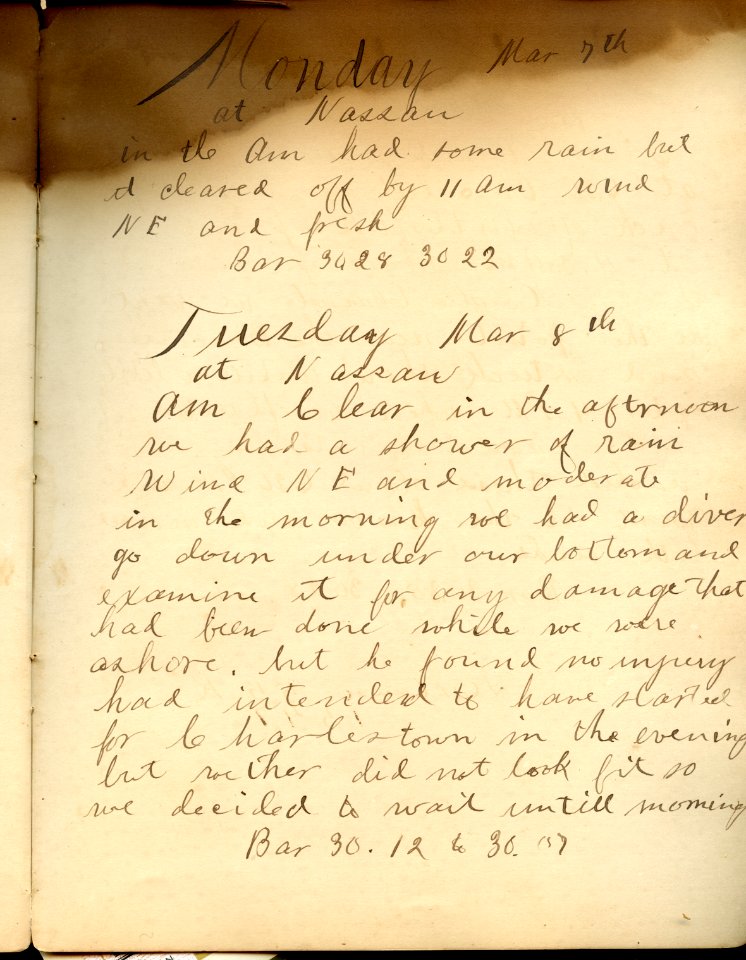 Monday Mar 7th
at Nassau
in the Am had some rain but
it cleared off by 11 am wind
NE and fresh
Bar 3028 3022
Tuesday Mar 8th
at Nassau
Am Clear in the afternoon
we had a shower of rain
Wind NE and moderate
in the morning we had a diver
go down under our bottom and
examine it for any damage that
had been done while we were
ashore. but he found no injury
had intended to have started
for Charlestown in the evening
but wether did not look fit so
we decided to wait untill morning
Bar 30.12 to 30.